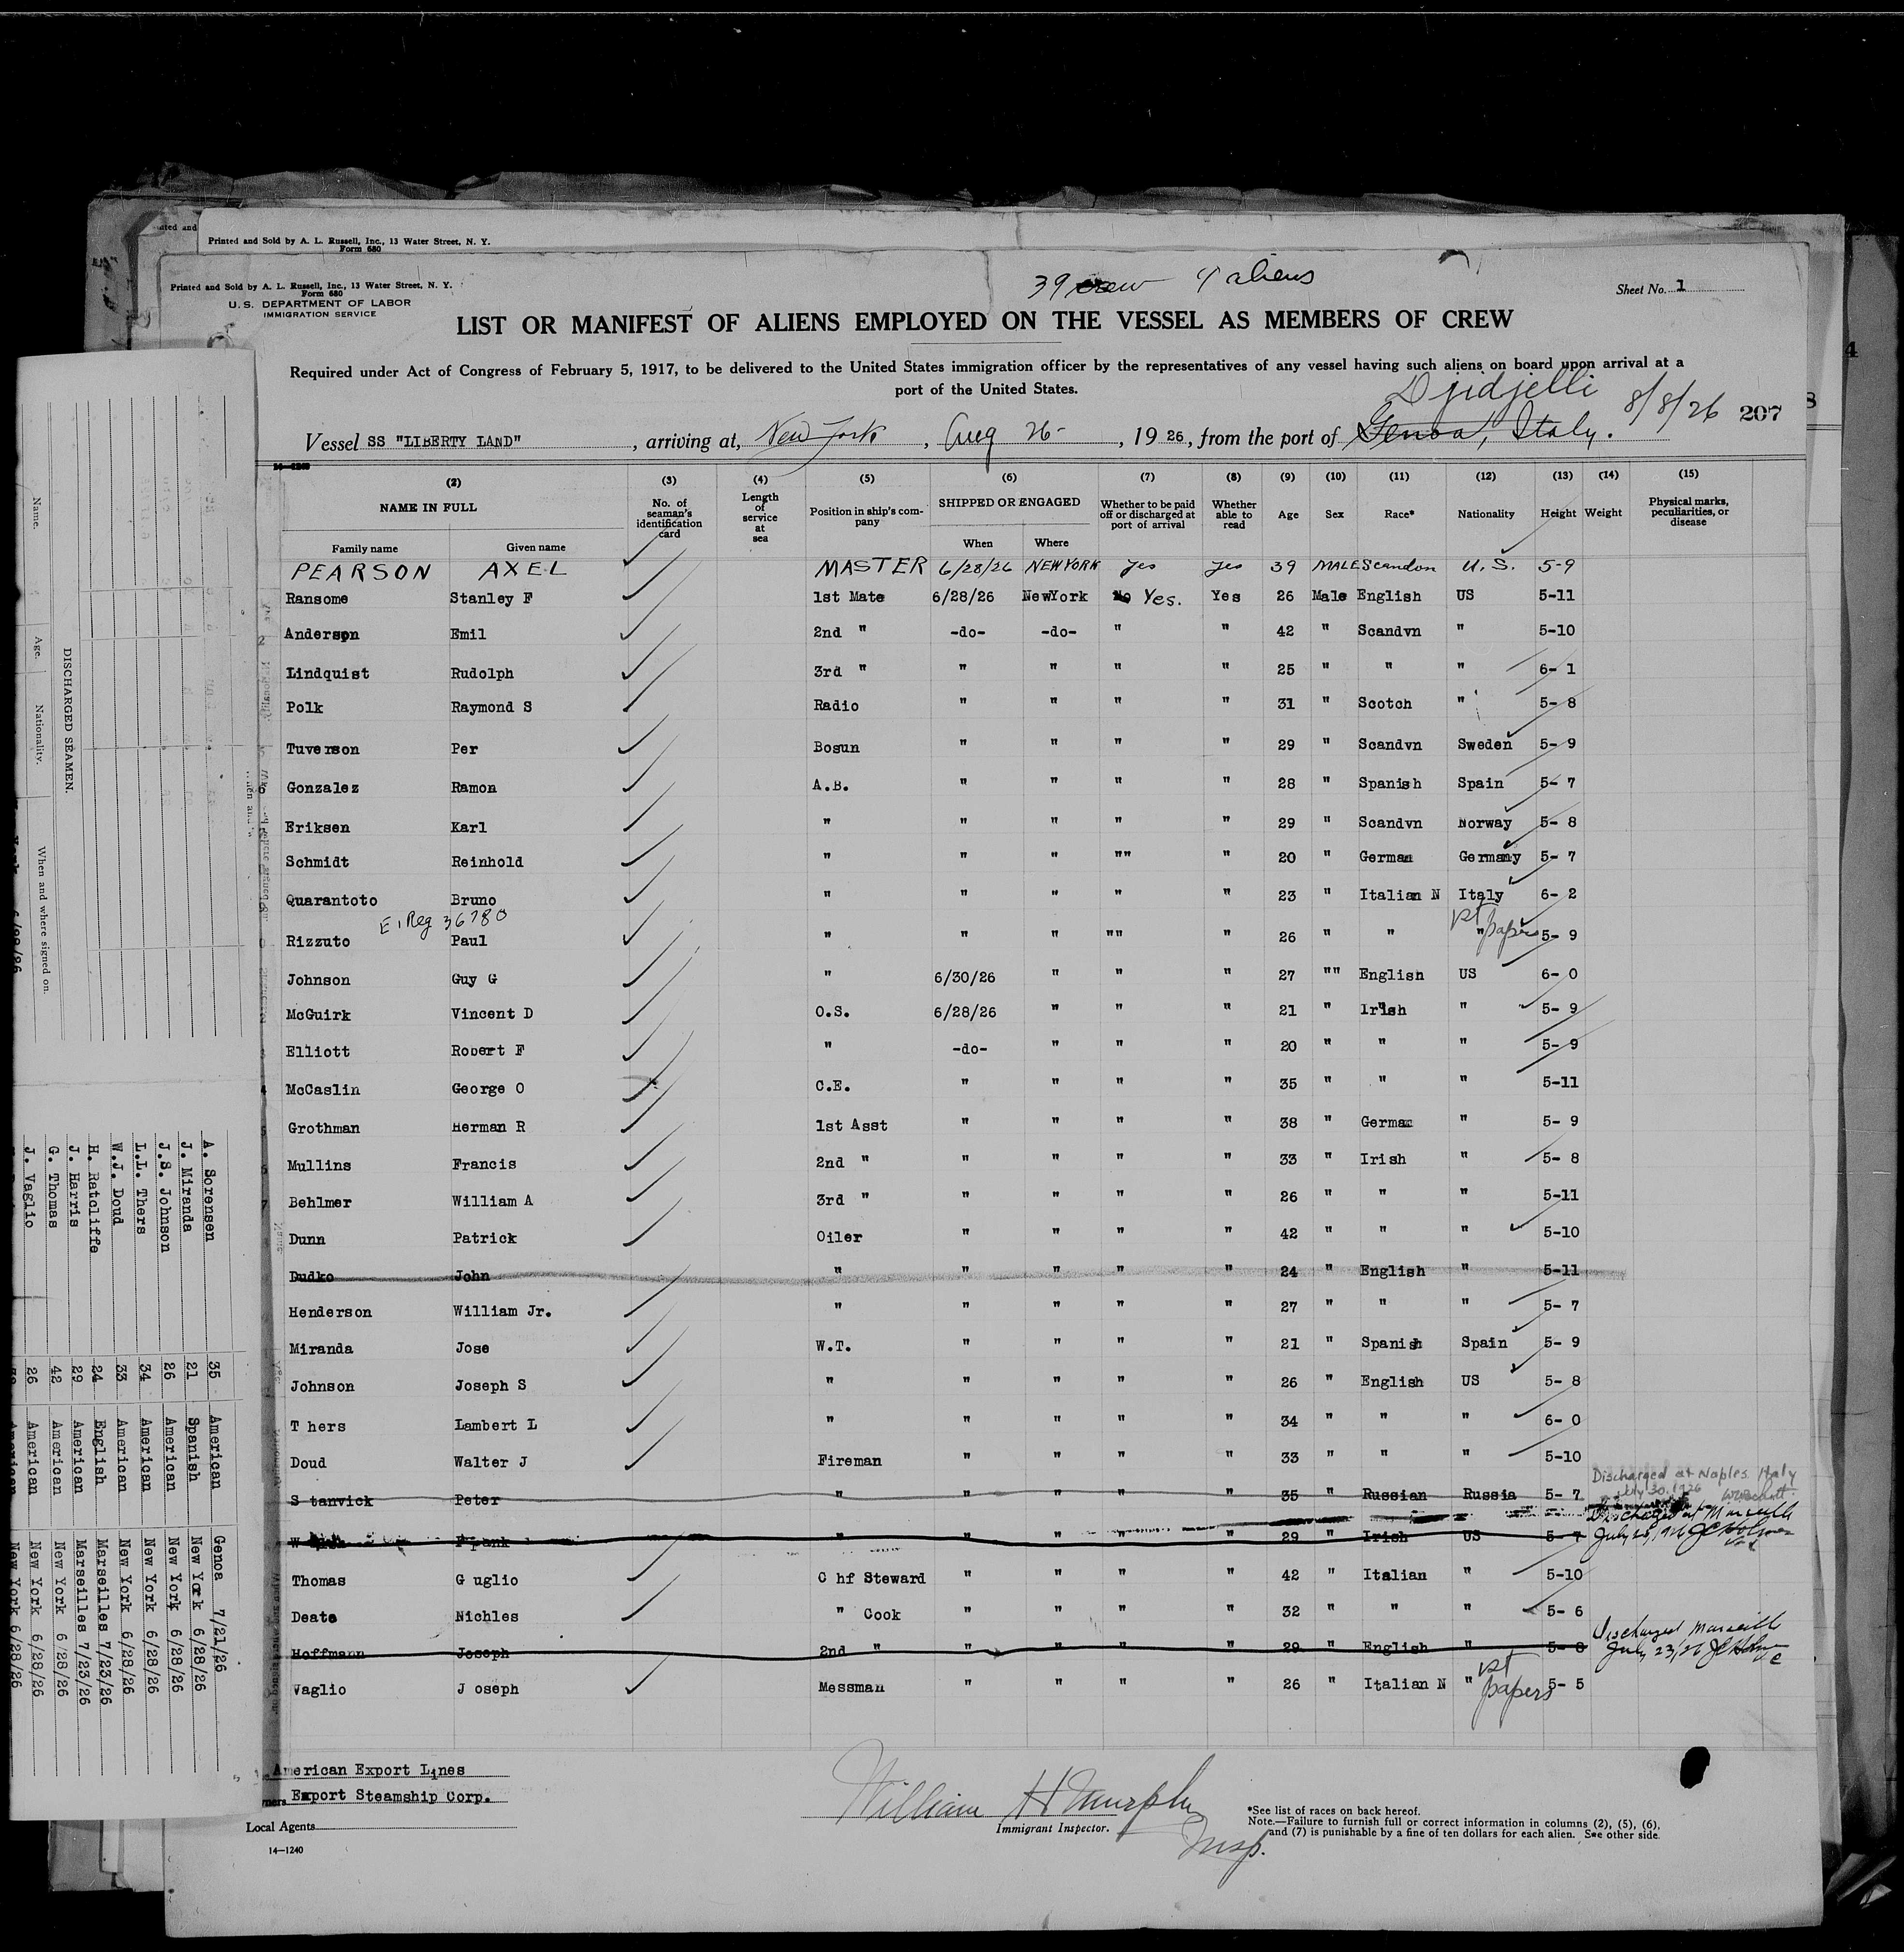 Printed and Sold by A. L. Russell, Inc., 13 Water Street, N. Y.
Form 680
Printed and Sold by A. L. Russell, Inc., 13 Water Street, N. Y.
Form 680
U. S. DEPARTMENT OF LABOR
IMMIGRATION SERVICE
39 crew 4 aliens
Sheet No. 1
LIST OR MANIFEST OF ALIENS EMPLOYED ON THE VESSEL AS MEMBERS OF CREW
Required under Act of Congress of February 5, 1917, to be delivered to the United States immigration officer by the representatives of any vessel having such aliens on board upon arrival at a
port of the United States.
Djidjelli 8/8/26 207
Vessel SS "LIBERTY LAND", arriving at, New York, Aug 26, 1926, from the port of Genoa, Italy.
(2) (3) (4) (5) (6) (7) (8) (9) (10) (11) (12) (13) (14) (15)
NAME IN FULL Family name Given name No. of seaman's identification card Length of service at sea Position in ship's company SHIPPED OR ENGAGED When Where Whether to be paid off or discharged at port of arrival Whether able to read Age Sex Race* Nationality Height Weight Physical marks, peculiarities, or disease
PEARSON AXEL MASTER 6/28/26 NEW YORK yes yes 39 MALE Scandon U.S. 5-9
Ransome Stanley F 1st Mate 6/28/26 NewYork No Yes. Yes 26 Male English US 5-11
2 Anderson Emil 2nd " -do- -do- " " 42 " Scandvn " 5-10
Lindquist Rudolph 3rd " " " " " 25 " " " 6- 1
Polk Raymond S Radio " " " " 31 " Scotch " 5- 8
Tuverson Per Bosun " " " " 29 " Scandvn Sweden 5- 9
6 Gonzalez Ramon A.B. " " " " 28 " Spanish Spain 5- 7
Eriksen Karl " " " " " 29 " Scandvn Norway 5- 8
Schmidt Reinhold " " " "" " 20 " German Germany 5- 7
Quarantoto Bruno " " " " " 23 " Italian N Italy 6- 2
E. Reg 36780 1st papers
Rizzuto Paul " " " "" " 26 " " " 5- 9
Johnson Guy G " 6/30/26 " " " 27 "" English US 6- 0
McGuirk Vincent D O.S. 6/28/26 " " " 21 " Irish " 5- 9
Elliott Robert F " -do- " " " 20 " " " 5- 9
4 McCaslin George O C.E. " " " " 35 " " " 5-11
5 Grothman Herman R 1st Asst " " " " 38 " German " 5- 9
Mullins Francis 2nd " " " " " 33 " Irish " 5- 8
7 Behlmer William A 3rd " " " " " 26 " " " 5-11
Dunn Patrick Oiler " " " " 42 " " " 5-10
Dudko John " " " " " 24 " English " 5-11
Henderson William Jr. " " " " " 27 " " " 5- 7
Miranda Jose W.T. " " " " 21 " Spanish Spain 5- 9
Johnson Joseph S " " " " " 26 " English US 5- 8
T hers Lambert L " " " " " 34 " " " 6- 0
Doud Walter J Fireman " " " " 33 " " " 5-10
Discharged at Naples Italy
July 30, 1926
S tanvick Peter " " " " " 35 " Russian Russia 5- 7
Discharged at Marseille
Frank " " " " " 29 " Irish US 5- 7 July 23, 1926 JC Holmes
Thomas G uglio C hf Steward " " " " 42 " Italian " 5-10
Deato Nichles " Cook " " " " 32 " " " 5- 6
Discharged Marseille
Hoffmann Joseph 2nd " " " " " 29 " English " 5- 8 July 23, 26
Vaglio J oseph Messman " " " " 26 " Italian N " 1st papers 5- 5
American Export Lines
Export Steamship Corp.
Local Agents
14—1240
William H Murphy
Insp.
Immigrant Inspector.
*See list of races on back hereof.
Note.—Failure to furnish full or correct information in columns (2), (5), (6),
and (7) is punishable by a fine of ten dollars for each alien. See other side.
DISCHARGED SEAMEN.
Name. Age. Nationality. When and where signed on.
A. Sorensen 35 American Genoa 7/21/26
J. Miranda 21 Spanish New York 6/28/26
J.S. Johnson 26 American New York 6/28/26
L.L. Thers 34 American New York 6/28/26
W.J. Doud 33 American New York 6/28/26
H. Ratcliffe 24 English Marseilles 7/23/26
J. Harris 29 American Marseilles 7/23/26
G. Thomas 42 American New York 6/28/26
J. Vaglio 26 American New York 6/28/26
American New York 6/28/26